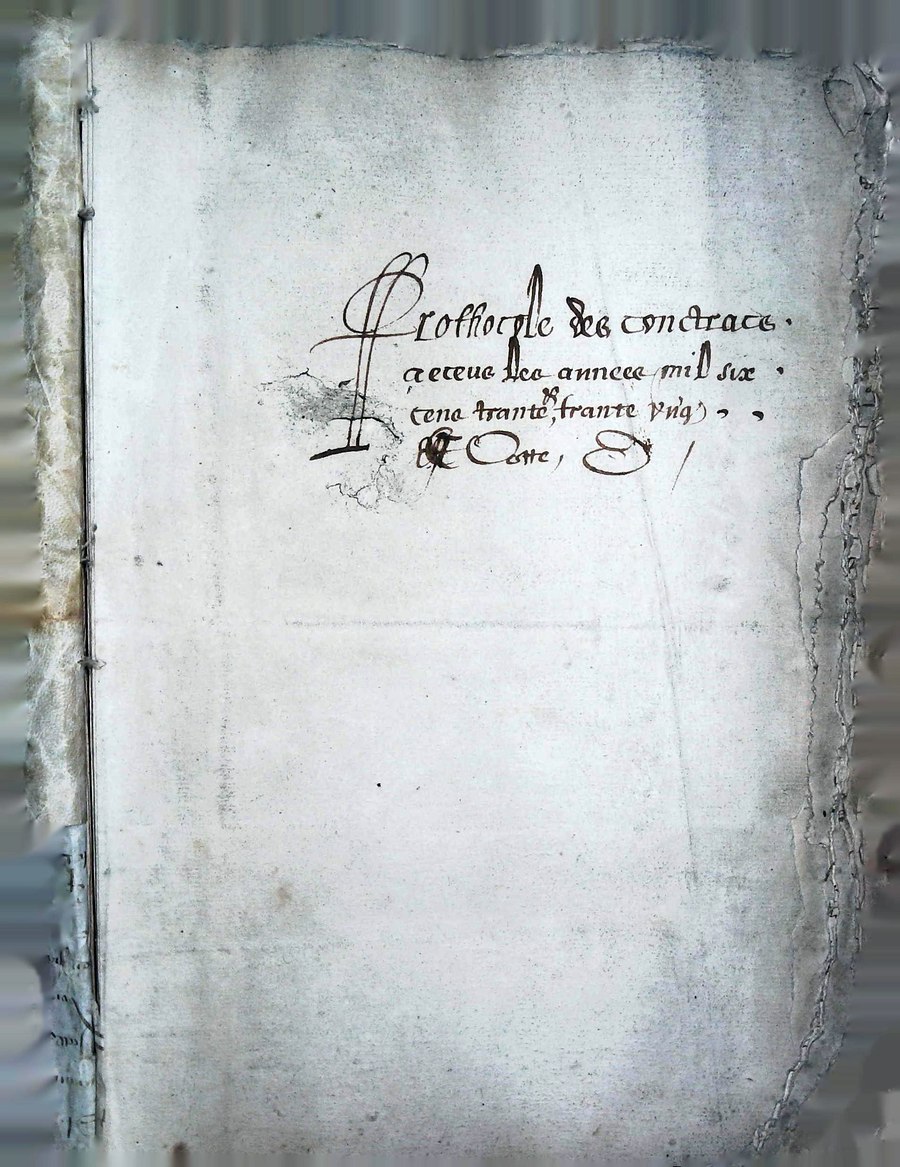 Prothocole des conctracts.
receus des annees mil six
cens trante, trante ung
Cotte, D